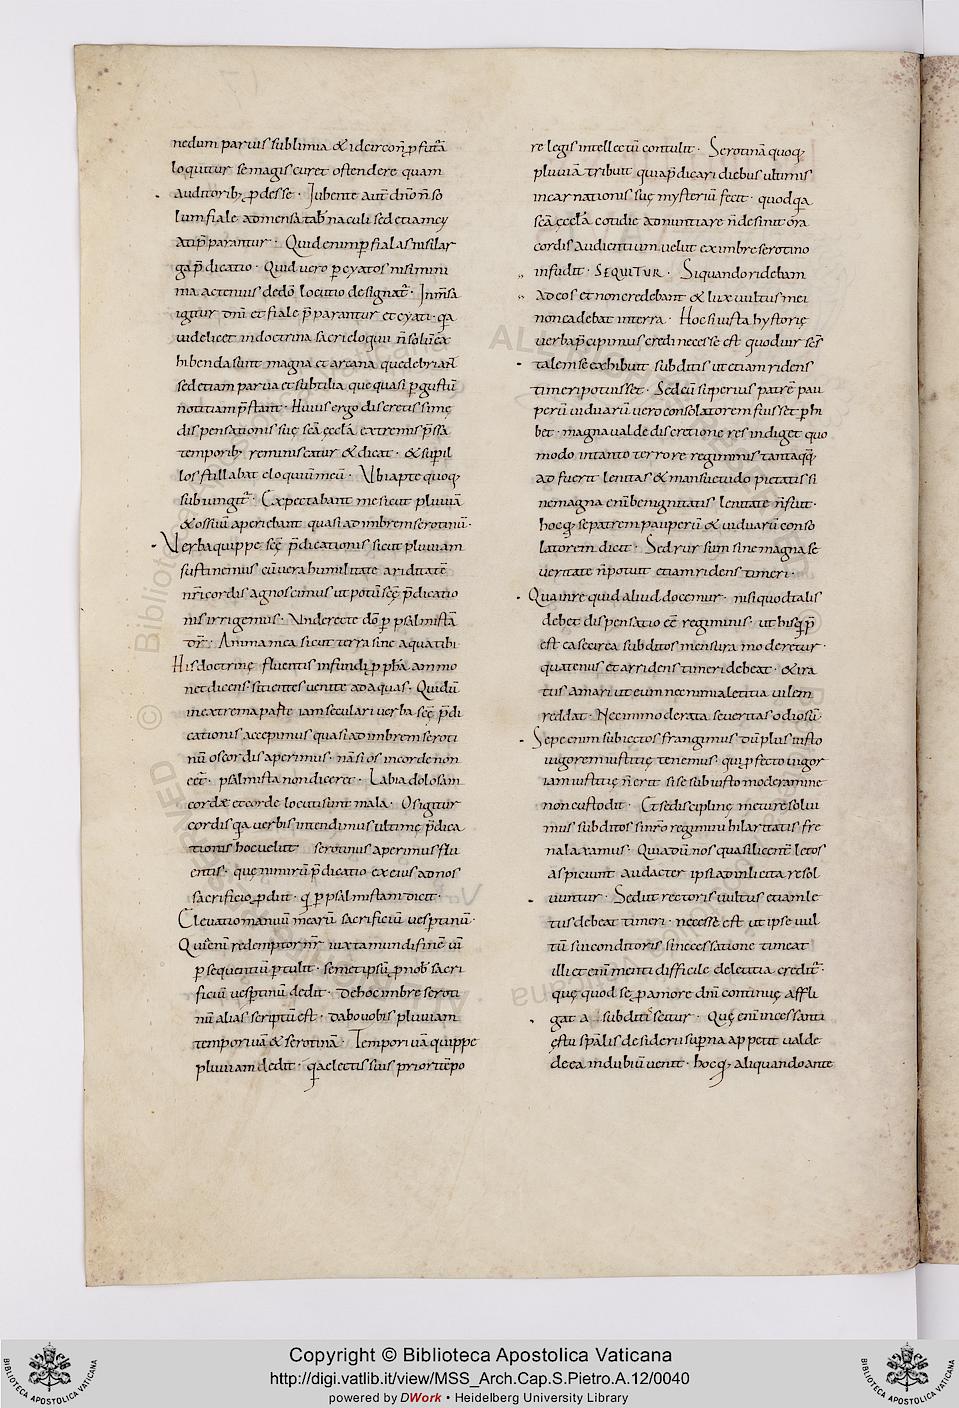 nedum paruis sublimia & idcirco n̄ p̄ futā
loquitur se magis curet ostendere quam
auditorib; p̱desse. Iubente aut̄ dn̄o n̄ so
lum fiale ad mensā tab̄naculi sed etiam cy
ati p̄parantur. Quid enim p̱ fialas nisi lar
ga p̄dicatio. Quid uero p̱ cyatos nisi mini
ma ac tenuis de dō locutio designat̄. In m̄sa
igitur dn̄i et fiale p̄parantur et cyati. q̄a
uidelicet in doctrina sacri eloquii n̄ solū ea
bibenda sunt magna et arcana que debriant
sed etiam parua et subtilia que quasi p̱ gustū
notitiam p̄stant. Huius ergo discretissimę
dispensationis suę sc̄a ęccl̄a extremis p̄ssa
temporib; reminiscatur & dicat. & sup̱ il
los stillabat eloquium meū. Ubi apte quoq;
subiungit̄. Expectabant me sicut pluuiā
& os suū aperiebant quasi ad imbrem serotinū.
Verba quippe sc̄ę p̄dicationis sicut pluuiam
sustinemus cū uera humilitate ariditatē
nr̄i cordis agnoscimus ut potū sc̄ę p̄dicatio
nis irrigemus. Unde recte dō p̱ psalmistā
dr̄. Anima mea sicut terra sine aqua tibi
His doctrinę fluentis infundi p̱ pph̄a ammo
net dicens. sitientes uenite ad aquas. Qui dū
in extrema parte iam seculari uerba sc̄ę p̄di
cationis accepimus quasi ad imbrem seroti
nū os cordis aperimus. nā si os in corde non
eet̄. psalmista non diceret. Labia dolosa in
corde et corde locuti sunt mala. Os igitur
cordis q̄a uerbis intendimus ultimę p̄dica
tionis hoc uelut serotinis aperimus flu
entis. quę nimirū p̄dicatio ex eius ad nos
sacrificio p̱diit. q̄ p̱ psalmistam dicit.
Eleuatio manuū mearū sacrificiū uesp̱tinū.
Qui en̄i redemptor nr̄ iuxta mundi finē uī
p̱sequentiū p̱tulit. semetipsū p̱ nob̄ sacri
ficiū uesp̱tinū dedit. De hoc imbre seroti
nū alias scriptū est. Dabo uobis pluuiam
temporiuā & serotinā. Temporiuā quippe
pluuiam dedit. q̄a electis suis priori tēpo
re legis intellectū contulit. Serotinā quoq;
pluuiā tribuit quia p̄dicari diebus ultimis
incarnationis suę mysteriū fecit. quod q̄a
sc̄a ęccl̄a cotidie adnuntiare n̄ desinit ora
cordis audientium uelut ex imbre serotino
infudit. SEQUITUR. Si quando ridebam
ad eos et non credebant & lux uultus mei
non cadebat in terra. Hoc si iuxta hystorię
uerba p̄cipimus credi necesse est quod uir sc̄s
talem se exhibuit subditis ut etiam ridens
timeri potuisset. Sed cū superius patrē pau
perū uiduarū uero consolatorem fuisse p̱hi
bet. magna ualde discretione res indiget quo
modo in tanto terrore regiminis tantaq̄q;
adfuerit lenitas & mansuetudo pietatis si
ne magna enī benignitatis lenitate n̄ fuit.
hoc q̄ se patrem pauperū & uiduarū conso
latorem dicit. Sed rursum sine magna se
ueritate n̄ potuit etiam ridens timeri.
Qua in re quid aliud docemur. nisi quod talis
debet dispensatio eē regiminis. ut his q̄ p̄
est ea se circa subditos mensura moderetur.
quatenus et arridens timeri debeat. & ira
tus amari ut eum nec nimia letitia uilem
reddat. Nec inmoderata seueritas odiosū.
Sepe enim subiectos frangimus dū plus iusto
uigorem iustitię tenemus. qui p̱fecto uigor
iam iustitię n̄ erit si se sub iusto moderamine
non custodit. Et sedisciplinę metu resolui
mus subditos si nr̄o regimini hilaritatis fre
na laxamus. Quia dū nos quasi licent̄ letos
aspiciunt audacter ipsi ad inlicita resol
uuntur. Sed ut rectoris uultus etiam le
tus debeat timeri. necesse est ut ipse uul
tū sui conditoris sine cessatione timeat
illi et enī menti difficile de letitia credit̄.
quę quod se p̱ amore dn̄i continuę affli
gat a subditis scitur. Quę enī incessanti
ęstu sp̄alis desiderii sup̱na appetit ualde
de ea in dubiū uenit. hoc q̄; aliquando ante
Copyright © Biblioteca Apostolica Vaticana
http://digi.vatlib.it/view/MSS_Arch.Cap.S.Pietro.A.12/0040
powered by DWork • Heidelberg University Library